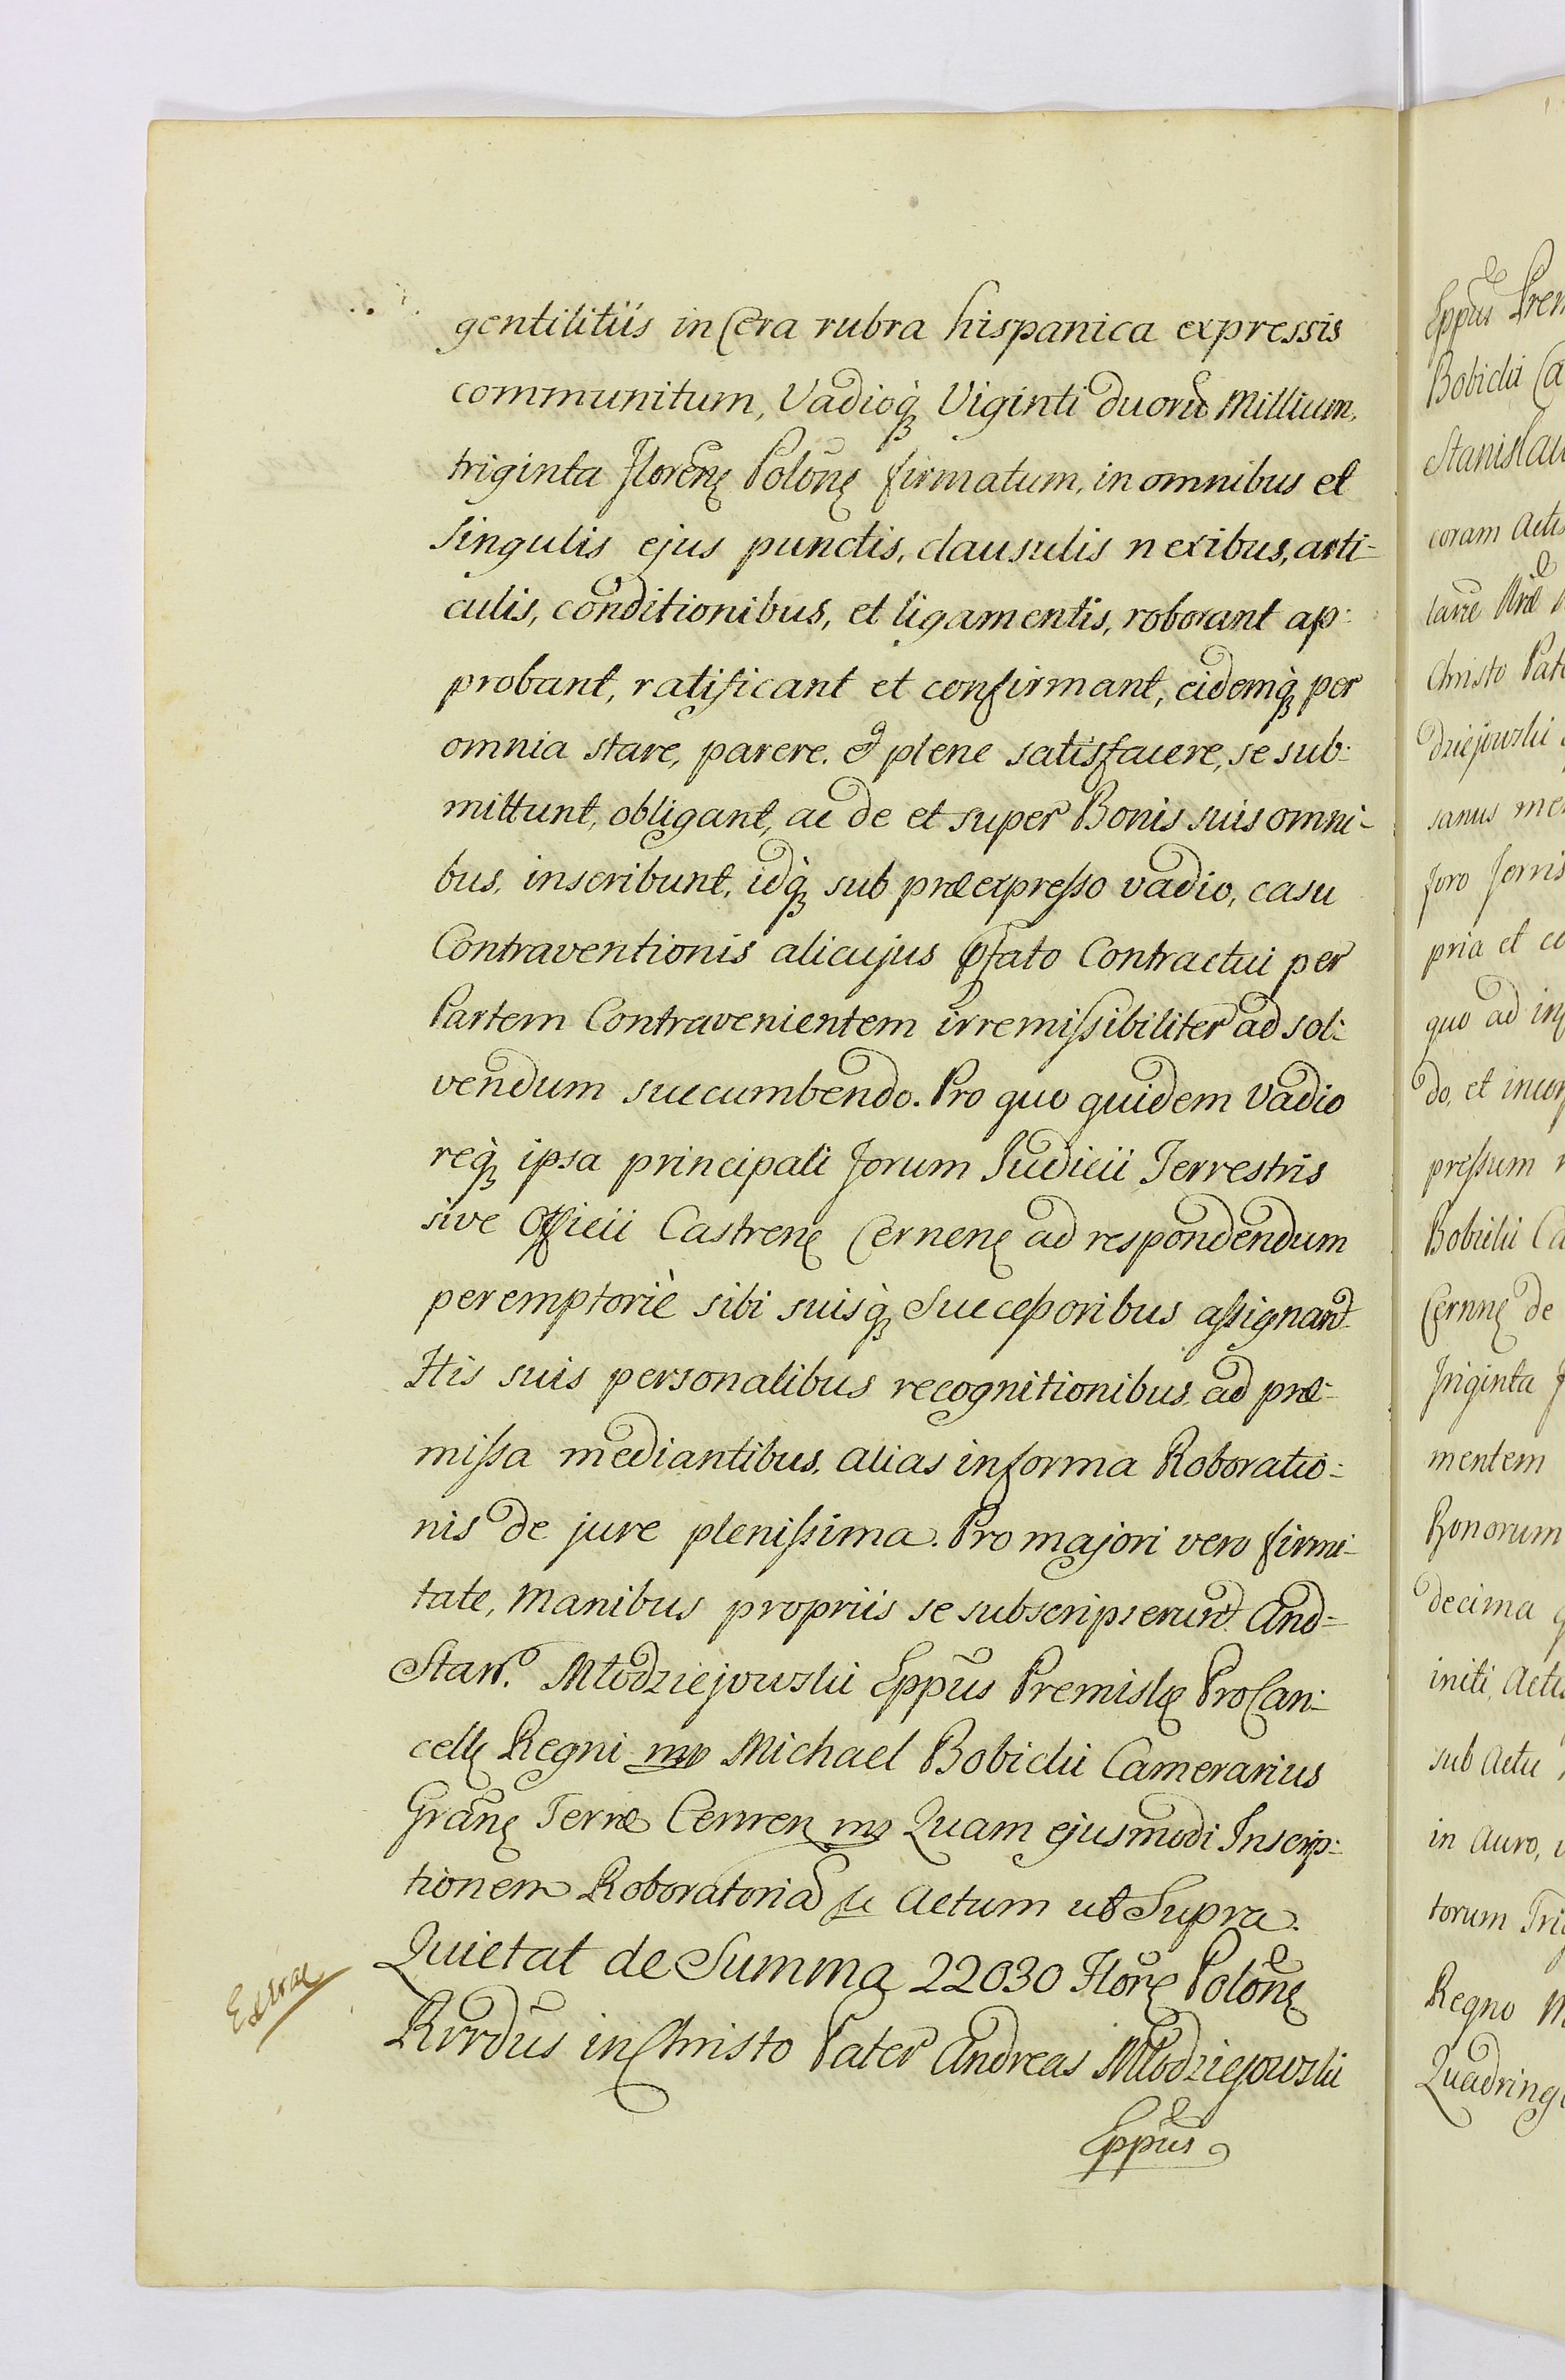 gentilitiis in Cera rubra hispanica expressis
communitum, Vadioq̀ Viginti duorũ Millium,
triginta Floreñ Poloñ firmatum, in omnibus et
singulis ejus punctis, clausulis nexibus, arti-
culis, conditionibus, et ligamentis, roborant ap:
probant, ratificant et confirmant, eidemq̀ per
omnia stare, parere, et plene satisfacere, se sub:
mittunt, obligant, ac de et super Bonis suis omni-
bus, inscribunt, idq̀ sub præexpresso vadio, casu
Contraventionis alicujus pfato Contractui per
Partem Contravenientem irremissibiliter ad sol:
vendum succumbendo. Pro quo quidem Vadio
req̀ ipsa principali forum Judicii Terrestris
sive Officii Castren Cernen ad respondendum
peremptoriè sibi suisq̀ Successoribus assignant
His suis personalibus recognitionibus ad præ:
missa mediantibus, alias in forma Roboratio:
nis de jure plenissima. Pro majori vero firmi-
tate, Manibus propriis se subscripserunt. And=
Stan. Młodziejowski Eppũs Premislæ ProCan:
cell Regni mp Michael Bobicki Camerarius
Grañ Terræ Cernen mp Quam ejusmodi Inscrip:
tionem Roboratoriã &c Actum ut Supra.
Quietat de Summa 22030 Flor Poloñ
Rrrdũs in Christo Pater Andreas Młodziejowski
Eppũs
Eppũs Prem
Bobicki Ca
Stanislau
coram Actis
Christo Pate
dziejowski
sanus me
foro
pria et co
quo ad in
do, et incor
pressum
Bobicki Ca
Cernn de
Triginta
mentem
Bonorum
decima
initi, Actu
sub Actu
in Auro,
torum Tri
Regno
Quadring